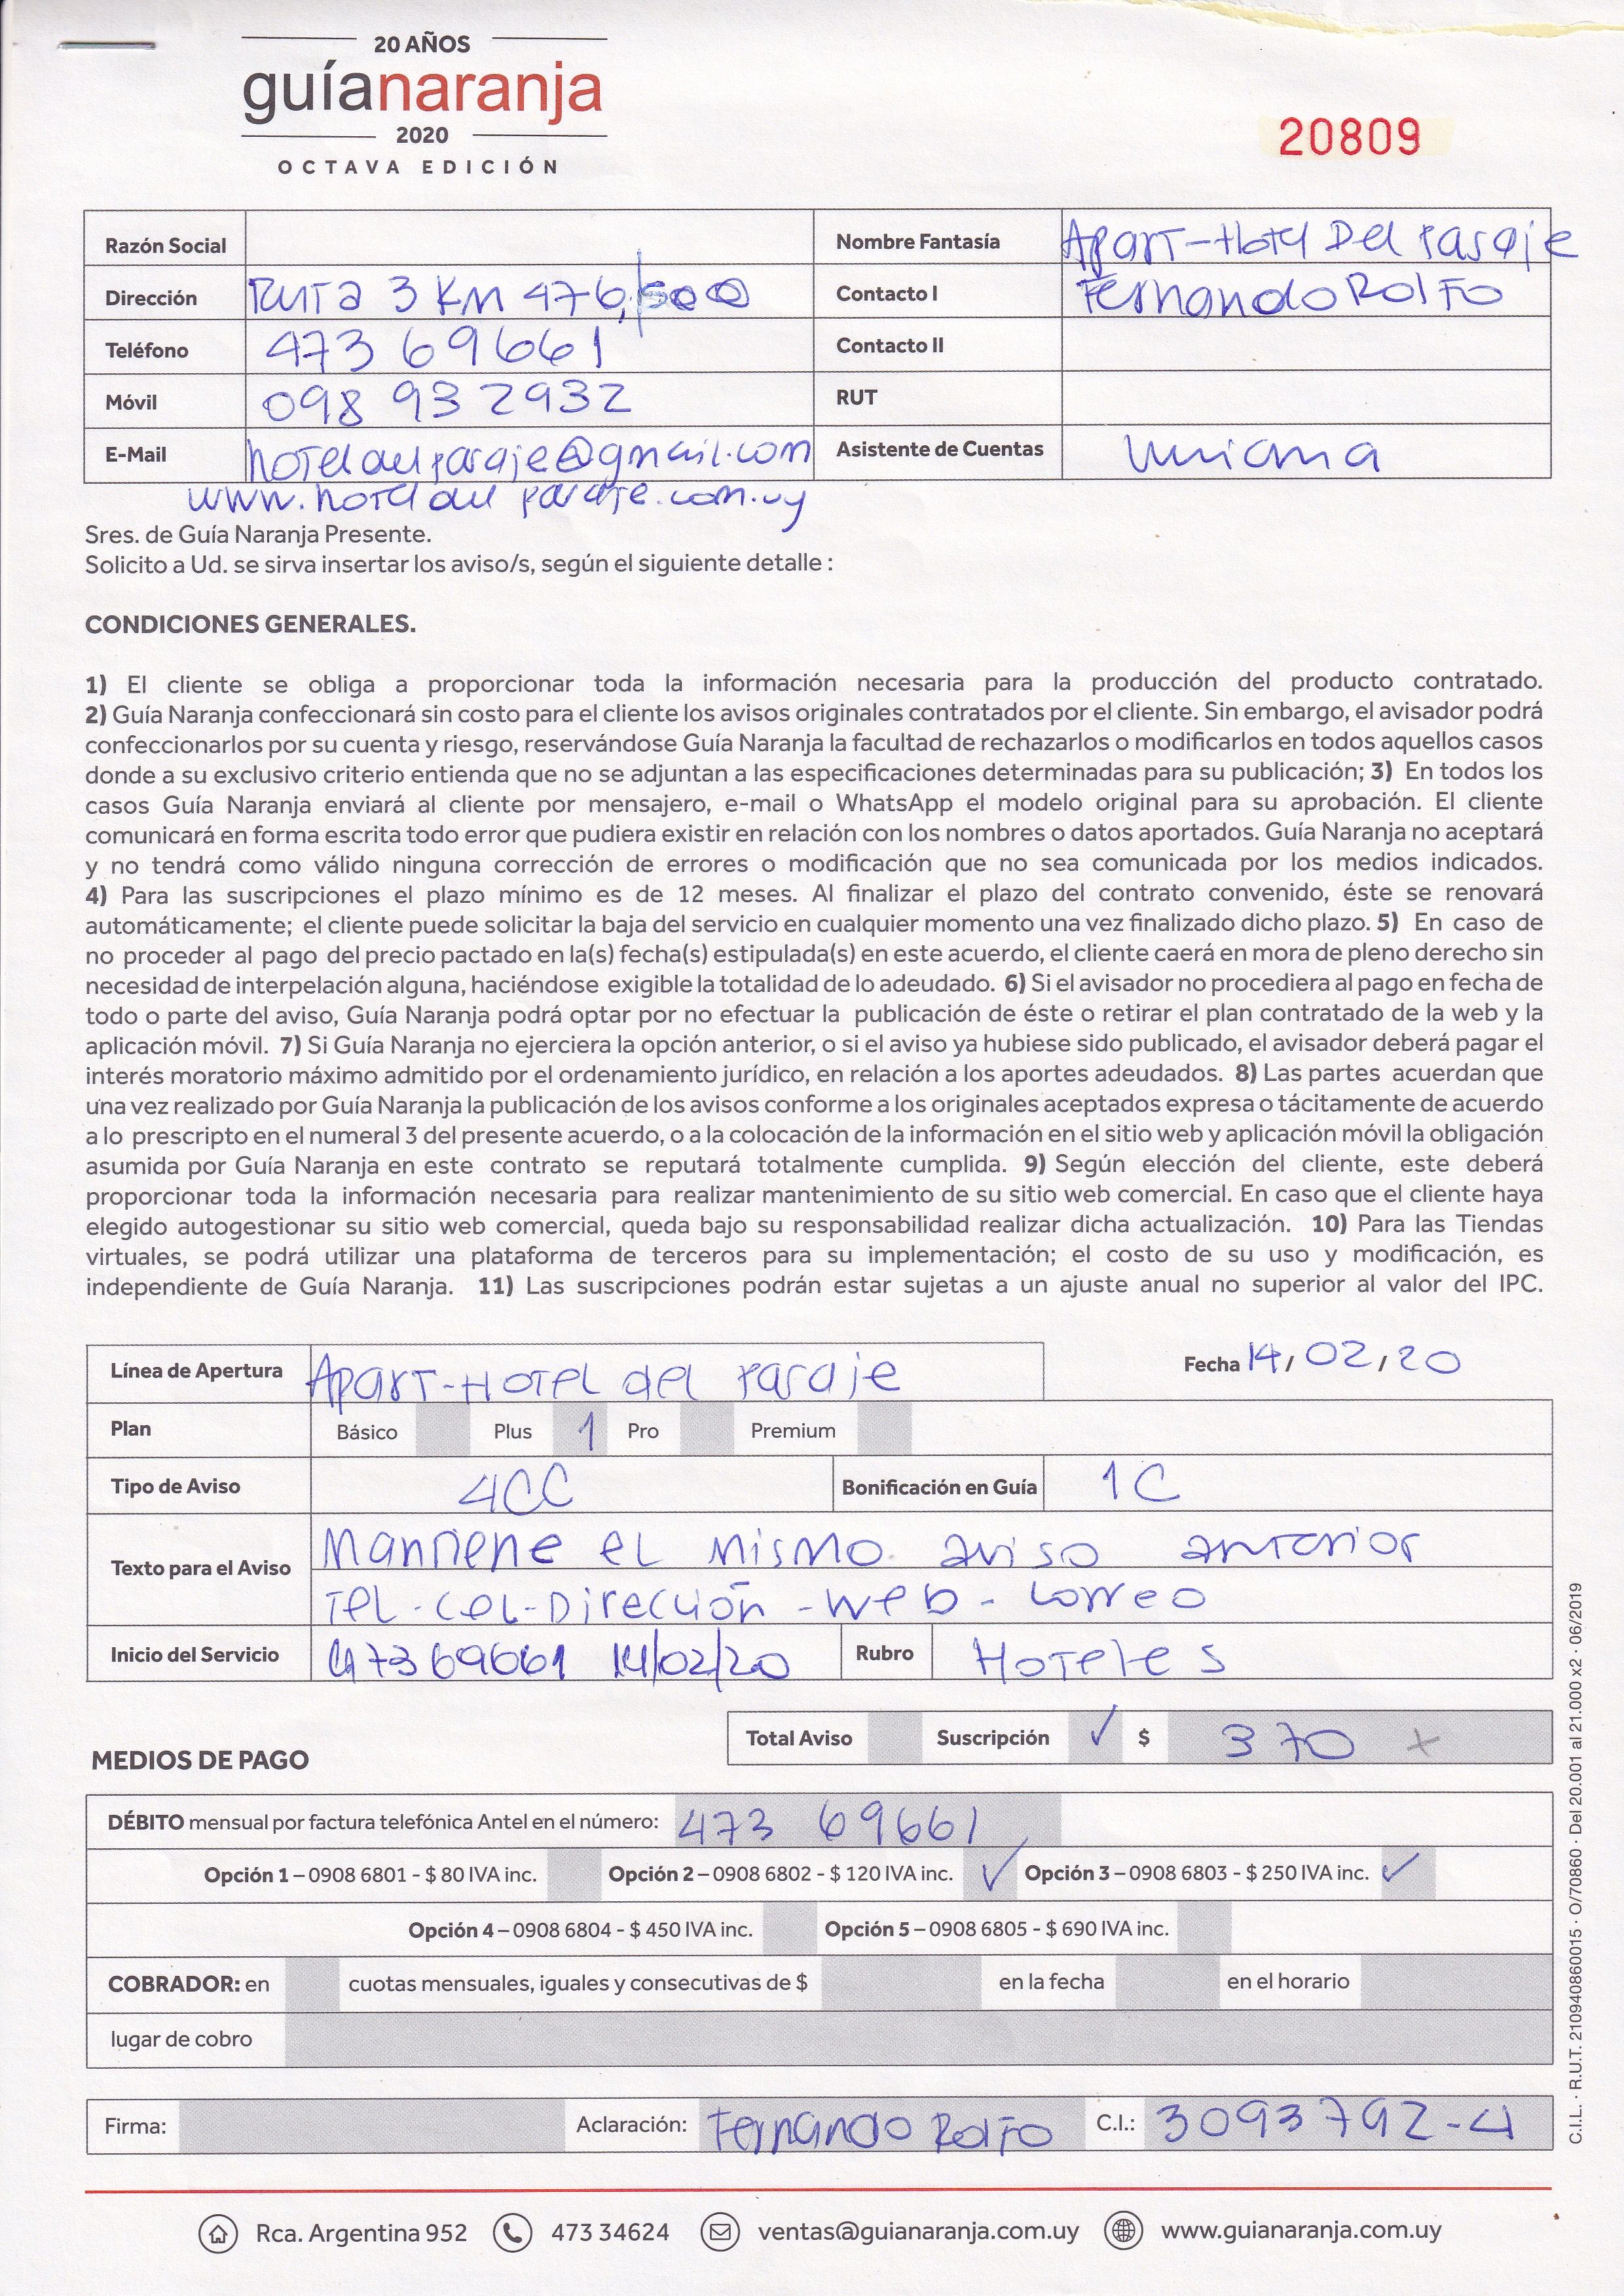 20 AÑOS
guíanaranja
2020
OCTAVA EDICIÓN
20809
Razón Social
Nombre Fantasía Apart-Hotel Del Paraje
Dirección Ruta 3 Km 476,500
Contacto I Fernando Rolfo
Teléfono 473 69661
Contacto II
Móvil 098 932932
RUT
E-Mail hoteldelparaje@gmail.com
Asistente de Cuentas
www.hoteldelparaje.com.uy
Sres. de Guía Naranja Presente.
Solicito a Ud. se sirva insertar los aviso/s, según el siguiente detalle :
CONDICIONES GENERALES.
1) El cliente se obliga a proporcionar toda la información necesaria para la producción del producto contratado.
2) Guía Naranja confeccionará sin costo para el cliente los avisos originales contratados por el cliente. Sin embargo, el avisador podrá
confeccionarlos por su cuenta y riesgo, reservándose Guía Naranja la facultad de rechazarlos o modificarlos en todos aquellos casos
donde a su exclusivo criterio entienda que no se adjuntan a las especificaciones determinadas para su publicación; 3) En todos los
casos Guía Naranja enviará al cliente por mensajero, e-mail o WhatsApp el modelo original para su aprobación. El cliente
comunicará en forma escrita todo error que pudiera existir en relación con los nombres o datos aportados. Guía Naranja no aceptará
y no tendrá como válido ninguna corrección de errores o modificación que no sea comunicada por los medios indicados.
4) Para las suscripciones el plazo mínimo es de 12 meses. Al finalizar el plazo del contrato convenido, éste se renovará
automáticamente; el cliente puede solicitar la baja del servicio en cualquier momento una vez finalizado dicho plazo. 5) En caso de
no proceder al pago del precio pactado en la(s) fecha(s) estipulada(s) en este acuerdo, el cliente caerá en mora de pleno derecho sin
necesidad de interpelación alguna, haciéndose exigible la totalidad de lo adeudado. 6) Si el avisador no procediera al pago en fecha de
todo o parte del aviso, Guía Naranja podrá optar por no efectuar la publicación de éste o retirar el plan contratado de la web y la
aplicación móvil. 7) Si Guía Naranja no ejerciera la opción anterior, o si el aviso ya hubiese sido publicado, el avisador deberá pagar el
interés moratorio máximo admitido por el ordenamiento jurídico, en relación a los aportes adeudados. 8) Las partes acuerdan que
una vez realizado por Guía Naranja la publicación de los avisos conforme a los originales aceptados expresa o tácitamente de acuerdo
a lo prescripto en el numeral 3 del presente acuerdo, o a la colocación de la información en el sitio web y aplicación móvil la obligación
asumida por Guía Naranja en este contrato se reputará totalmente cumplida. 9) Según elección del cliente, este deberá
proporcionar toda la información necesaria para realizar mantenimiento de su sitio web comercial. En caso que el cliente haya
elegido autogestionar su sitio web comercial, queda bajo su responsabilidad realizar dicha actualización. 10) Para las Tiendas
virtuales, se podrá utilizar una plataforma de terceros para su implementación; el costo de su uso y modificación, es
independiente de Guía Naranja. 11) Las suscripciones podrán estar sujetas a un ajuste anual no superior al valor del IPC.
Línea de Apertura Apart-Hotel del Paraje
Fecha 14/02/20
Plan Básico Plus 1 Pro Premium
Tipo de Aviso 4CC Bonificación en Guía 1C
Texto para el Aviso Mantiene el mismo aviso anterior
Tel-Cel-Dirección-Web-Correo
Inicio del Servicio 47369661 14/02/20 Rubro Hoteles
Total Aviso Suscripción ✓ $ 370
MEDIOS DE PAGO
DÉBITO mensual por factura telefónica Antel en el número: 473 69661
Opción 1 – 0908 6801 - $ 80 IVA inc. Opción 2 – 0908 6802 - $ 120 IVA inc. ✓ Opción 3 – 0908 6803 - $ 250 IVA inc. ✓
Opción 4 – 0908 6804 - $ 450 IVA inc. Opción 5 – 0908 6805 - $ 690 IVA inc.
COBRADOR: en cuotas mensuales, iguales y consecutivas de $ en la fecha en el horario
lugar de cobro
Firma: Aclaración: Fernando Rolfo C.I.: 3093792-4
C.I.L. · R.U.T. 210940860015 · O/70860 · Del 20.001 al 21.000 x2 · 06/2019
Rca. Argentina 952 473 34624 ventas@guianaranja.com.uy www.guianaranja.com.uy